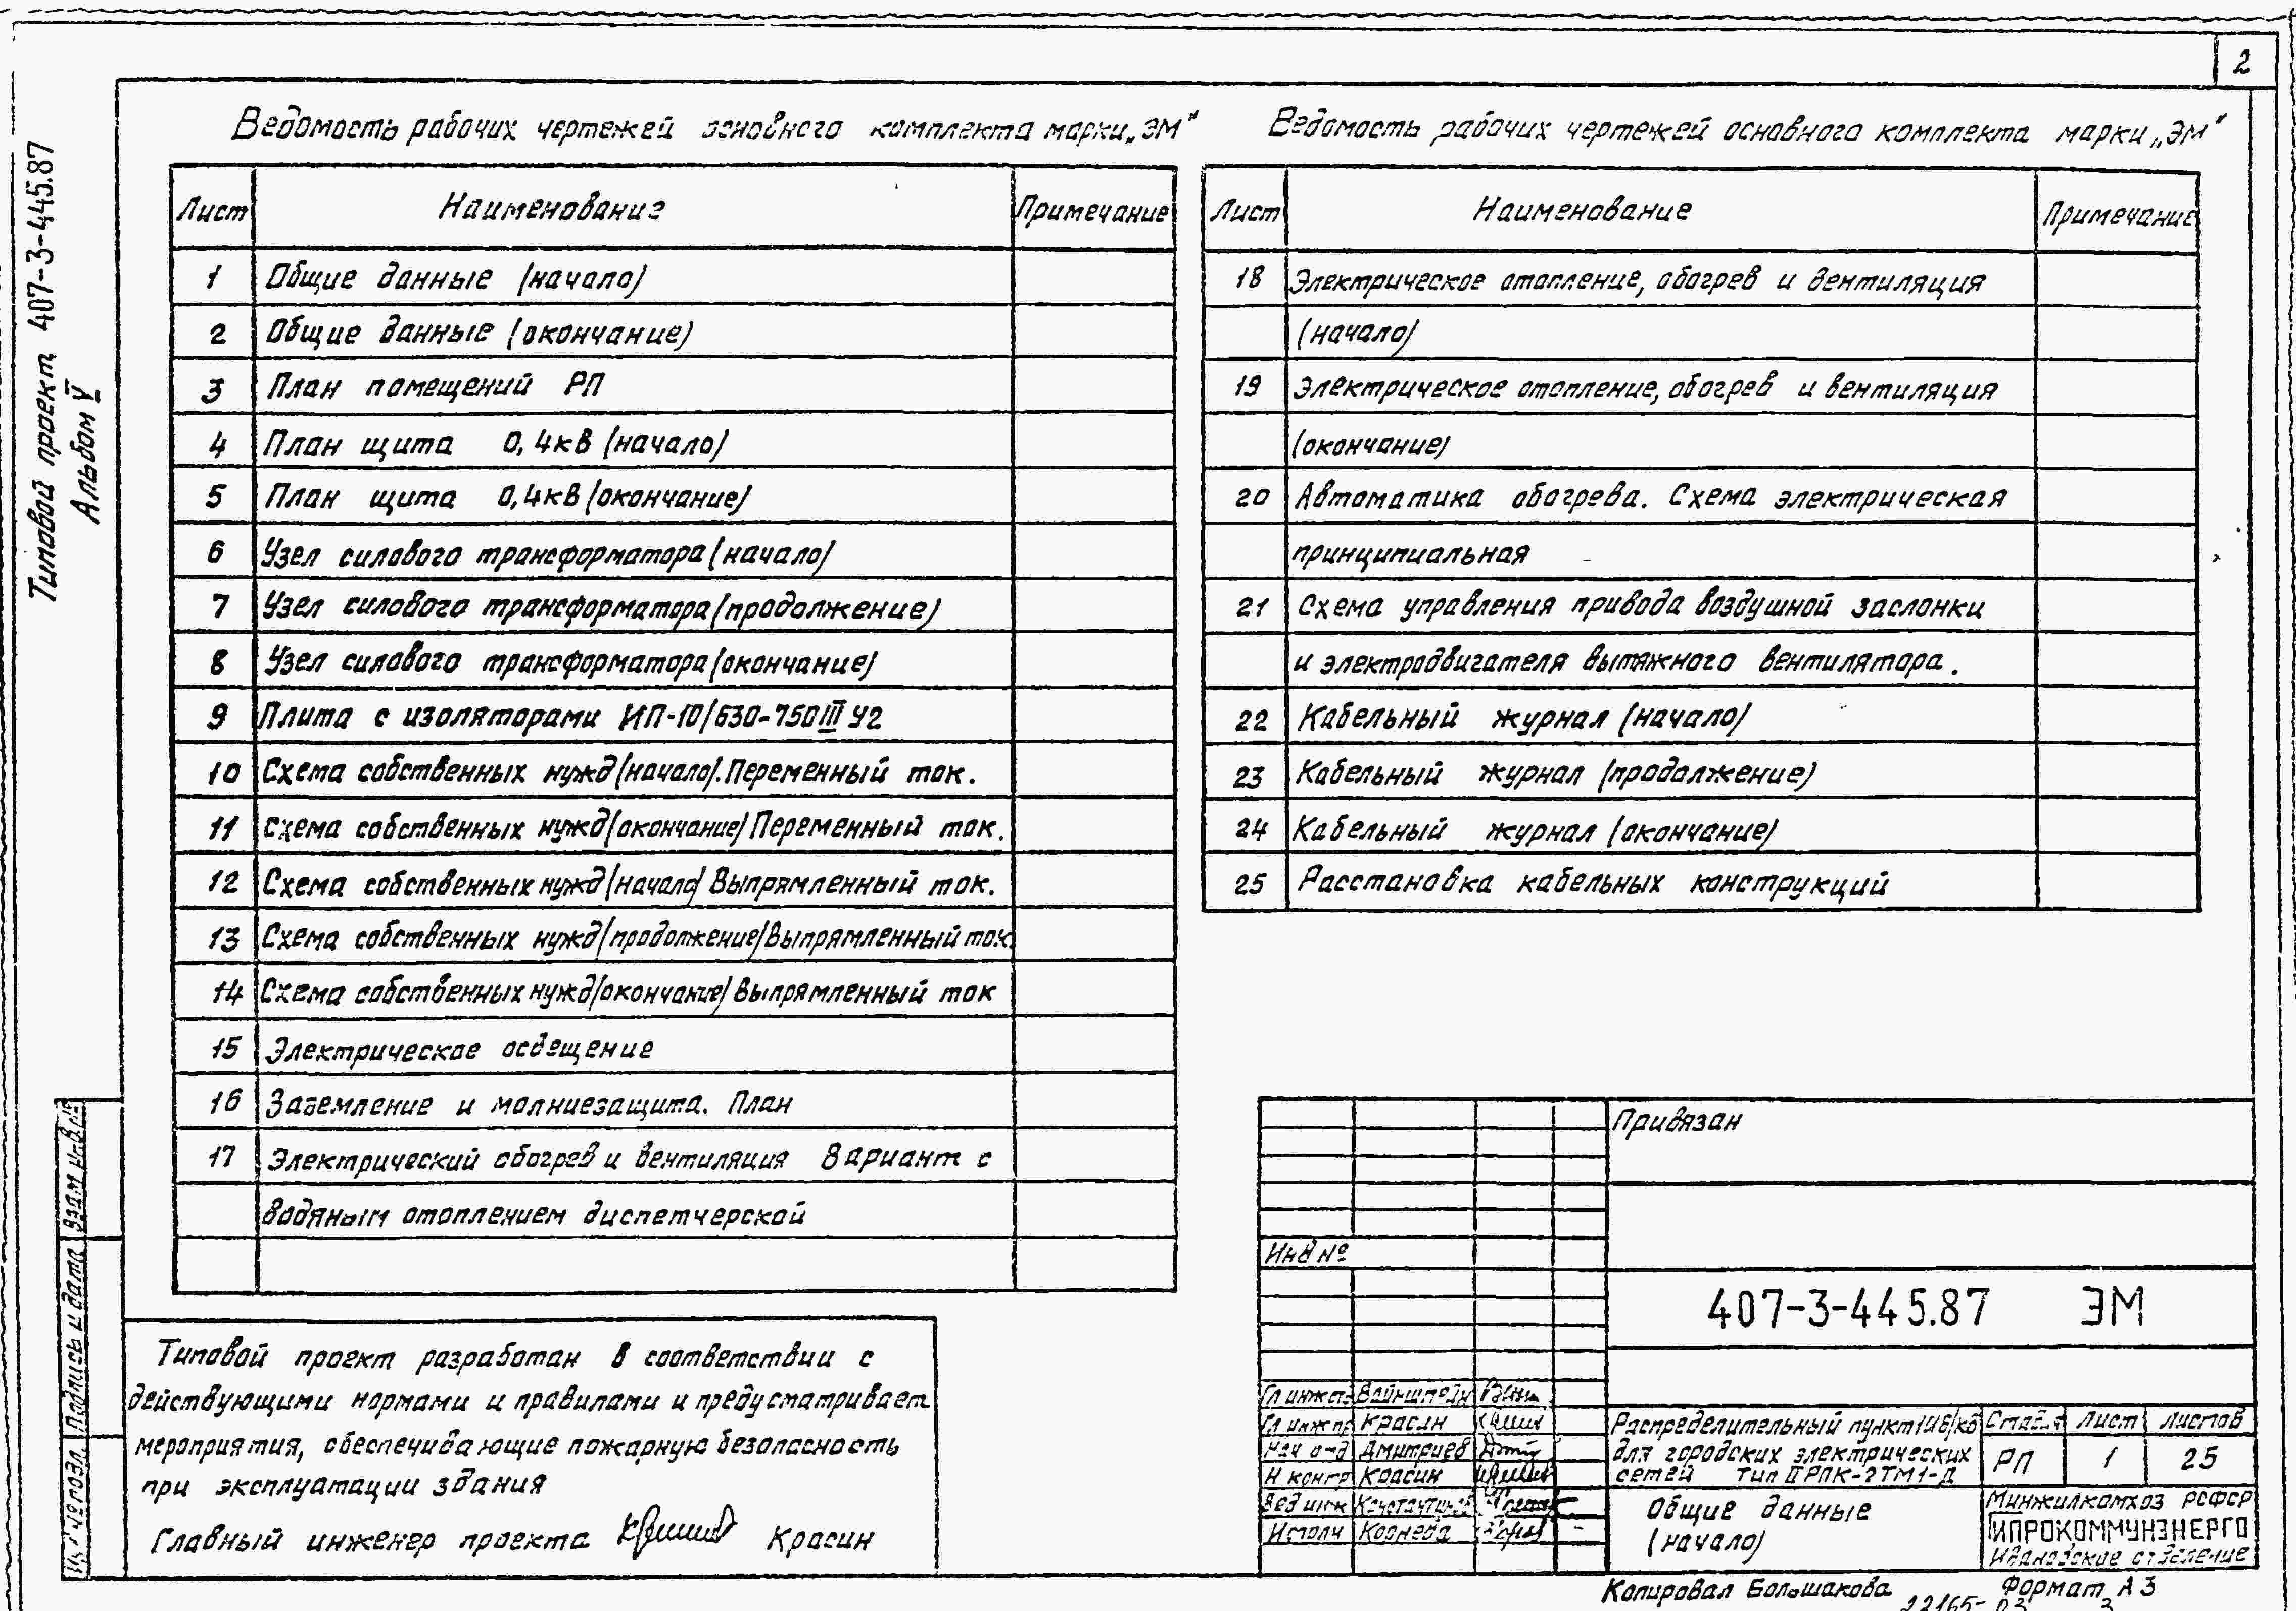 2
Типовой проект 407-3-445.87
Альбом V
Ведомость рабочих чертежей основного комплекта марки „ЭМ"
Лист Наименование Примечание
1 Общие данные (начало)
2 Общие данные (окончание)
3 План помещений РП
4 План щита 0,4кВ (начало)
5 План щита 0,4кВ (окончание)
6 Узел силового трансформатора (начало)
7 Узел силового трансформатора (продолжение)
8 Узел силового трансформатора (окончание)
9 Плита с изоляторами ИП-10/630-750 III У2
10 Схема собственных нужд (начало). Переменный ток.
11 Схема собственных нужд (окончание) Переменный ток.
12 Схема собственных нужд (начало) Выпрямленный ток.
13 Схема собственных нужд (продолжение) Выпрямленный ток.
14 Схема собственных нужд (окончание) Выпрямленный ток
15 Электрическое освещение
16 Заземление и молниезащита. План
17 Электрический обогрев и вентиляция Вариант с
водяным отоплением диспетчерской
Ведомость рабочих чертежей основного комплекта марки „ЭМ"
Лист Наименование Примечание
18 Электрическое отопление, обогрев и вентиляция
(начало)
19 Электрическое отопление, обогрев и вентиляция
(окончание)
20 Автоматика обогрева. Схема электрическая
принципиальная
21 Схема управления привода воздушной заслонки
и электродвигателя вытяжного вентилятора.
22 Кабельный журнал (начало)
23 Кабельный журнал (продолжение)
24 Кабельный журнал (окончание)
25 Расстановка кабельных конструкций
Типовой проект разработан в соответствии с
действующими нормами и правилами и предусматривает
мероприятия, обеспечивающие пожарную безопасность
при эксплуатации здания
Главный инженер проекта Красин
Подпись и дата
Привязан
Инв №
407-3-445.87 ЭМ
Вайнштейн
Гл инж пр Красин
Нач отд Дмитриев
Н контр Красин
Вед инж
Исполн Корнева
Распределительный пункт
для городских электрических
сетей тип II РПК-2ТМ1-Д
Стадия Лист Листов
РП 1 25
Общие данные
(начало)
Минжилкомхоз РСФСР
ГИПРОКОММУНЭНЕРГО
Ивановское отделение
Копировал Большакова Формат А3
22165-03 3